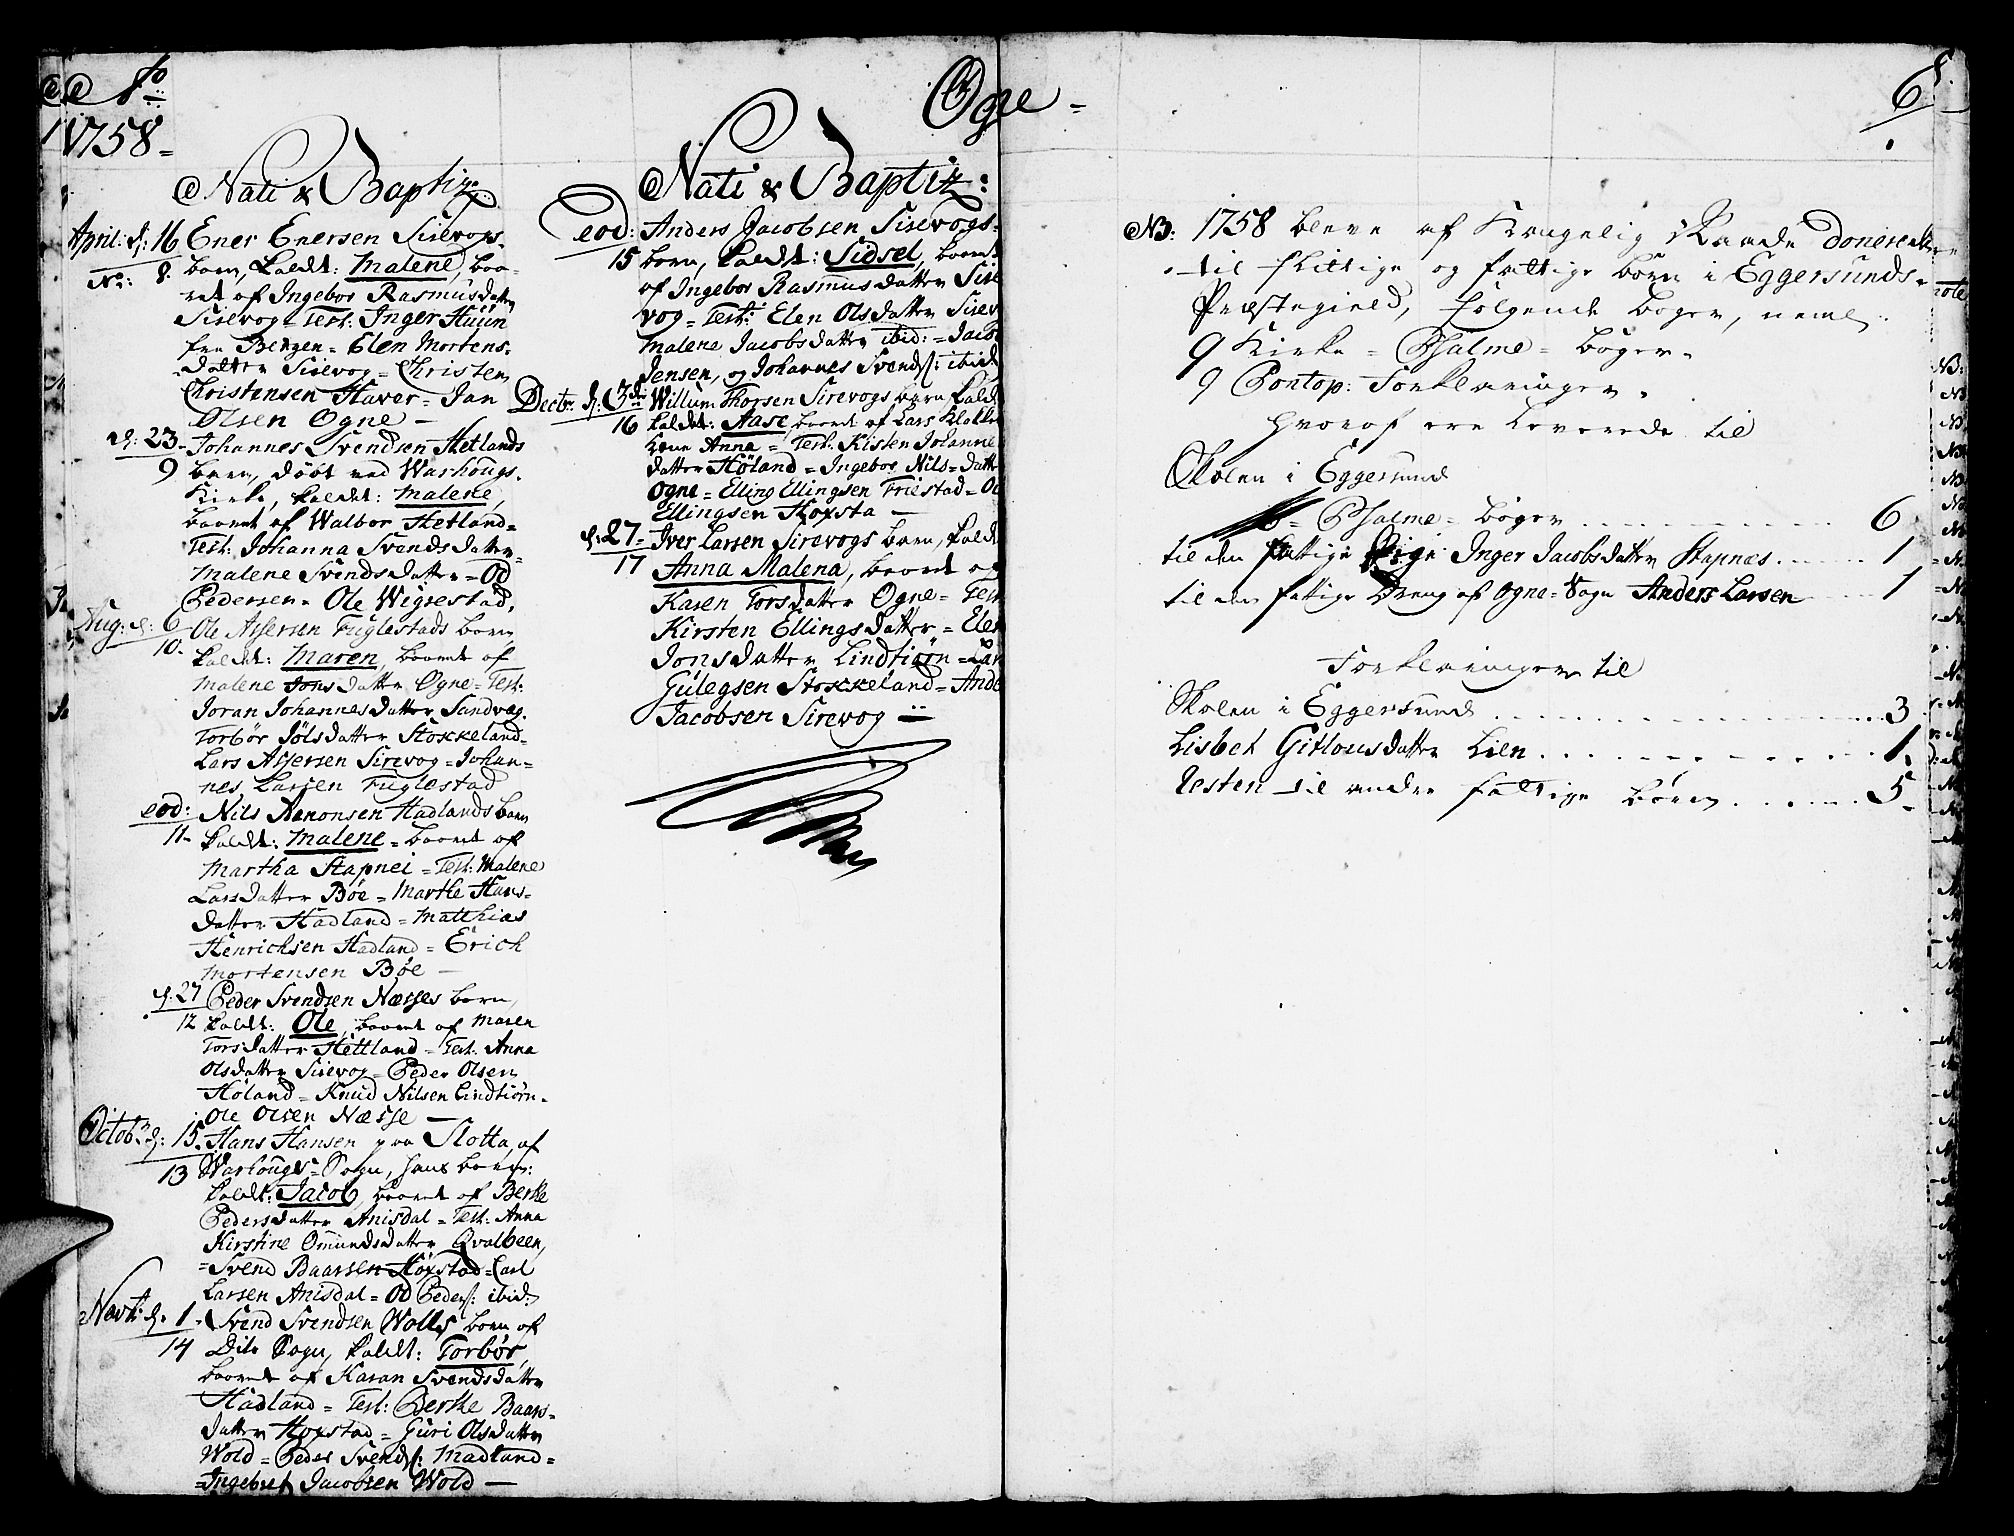 Ogne
1758
Nati & Baptiz:
April: d: 16 Ener Enersen Sirevogs
No: 8. barn, kaldt: Malene, baa-
ret af Ingebor Rasmusdatter
Sirevog = Test: Inger
fra Bergen = Elen Mortens-
datter Sirevog = Christen
Christensen Haver = Jan
Olsen Ogne —
d: 23. Johannes Svendsen Hetlands
9 barn, døbt ved Warhougs
Kirke, kaldt: Malene,
baaret af Walbor Hetland =
Test: Johanna Svends datter
Malene Svends datter = Od
Pedersen = Ole Wigrestad,
Aug: d: 6 Ole Assersen Fuglestads barn
10. kaldt: Maren, baaret af
Malene Jons datter Ogne = Test:
Joran Johannes datter Sandvag.
Torbør Jølsdatter Stokkeland =
Lars Assersen Sirevog = Johan-
nes Larsen Fuglestad
eod: Nils Aanonsen Hadlands barn
11. kaldt: Malene = baaret af
Martha Stapnei = Test: Malene
Larsdatter Bøe = Marthe Hans-
datter Hadland = Matthias
Henrichsen Hadland = Erich
Mortensen Bøe —
d. 27 Peder Svendsen Næsses barn,
12 kaldt: Ole, baaret af Maren
Torsdatter Hettland = Test: Anna
Olsdatter Sirevog = Peder Olsen
Høland = Knud Nilsen Lindtiørn =
Ole Olsen Næsse —
Octobr d: 15. Hans Hansen paa Slotta, af
13 Warhougs = Sogn, hans barn:
kaldt: Jacob, baaret af Berthe
Pedersdatter Anisdal = Test: Anna
Kirstine Omundsdatter Qvalbeen,
= Svend Baarsen Høxstad = Carl
Larsen Anisdal = Od Peders: ibid:
Novb: d. 1. Svend Svendsen Wolls barn af
14 Dito Sogn, kaldt: Torbør,
baaret af Karan Svendsdatter
Hadland = Test: Berthe Baars-
datter Hoxstad = Guri Olsdatter
Wold = Peder Svends: Madland =
= Ingebret Jacobsen Wold —
Nati & Baptiz:
eod: Anders Jacobsen Sirevogs =
15 barn, kaldt: Sidsel, baaret
af Ingebor Rasmusdatter Sire
vog = Test: Elen Olsdatter Sirev
Malene Jacobsdatter ibid: = Jacob
Jensen, og Johannes Svends: ibid
Decbr: d: 3de Willum Thorsen Sirevogs barn kald
16 kaldt: Aase, baaret af Lars Klokke
Kone Anna = Test: Kisten Johanne
datter Høland = Ingebor Nils = datt
Ogne = Elling Ellingsen Friestad = Ol
Ellingsen Hoxsta —
d: 27. Iver Larsen Sirevogs barn, kaldt
17 Anna Malena, baaret af
Karen Torsdatter Ogne = Test
Kirsten Ellingsdatter = Elen
Jonsdatter Lindtiørn = Lar
Gulegsen Stokkeland = Ande
Jacobsen Sirevog —
6
NB: 1758 bleve af Kongelig Naade doneret
til flittige og fattige børn i Eggersunds =
Præstegield, følgende bøger, neml:
9 Kirke = Psalme = bøger.
9 Pontop: Forklaringer.
hvoraf ere leverede til
Skolen i Eggersund
Psalme = bøger . . . . . . 6
til den fattige Pige Inger Jacobsdatter Stapnes . . . . . 1
til en fattige Dreng af Ogne = Sogn Anders Larsen . . . 1
Forklaringer til
Skolen i Eggersund . . . . . . 3
Lisbet Gitlousdatter Lien . . . . . . 1.
Resten til andre fattige børn . . . . . . 5.